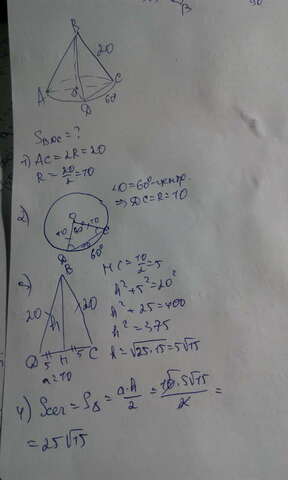 B
20
A
C
D
60°
S_BDC = ?
1) AC = 2R = 20
R = 20/2 = 10
2)
O
60°
10
60°
∠O = 60° - центр.
⇒ DC = R = 10
3)
B
20
h
20
D 5 H 5 C
a = 10
HC = 10/2 = 5
h² + 5² = 20²
h² + 25 = 400
h² = 375
h = √25·15 = 5√15
4) Sсеч = S△ = a·h/2 = 10·5√15/2 =
= 25√15